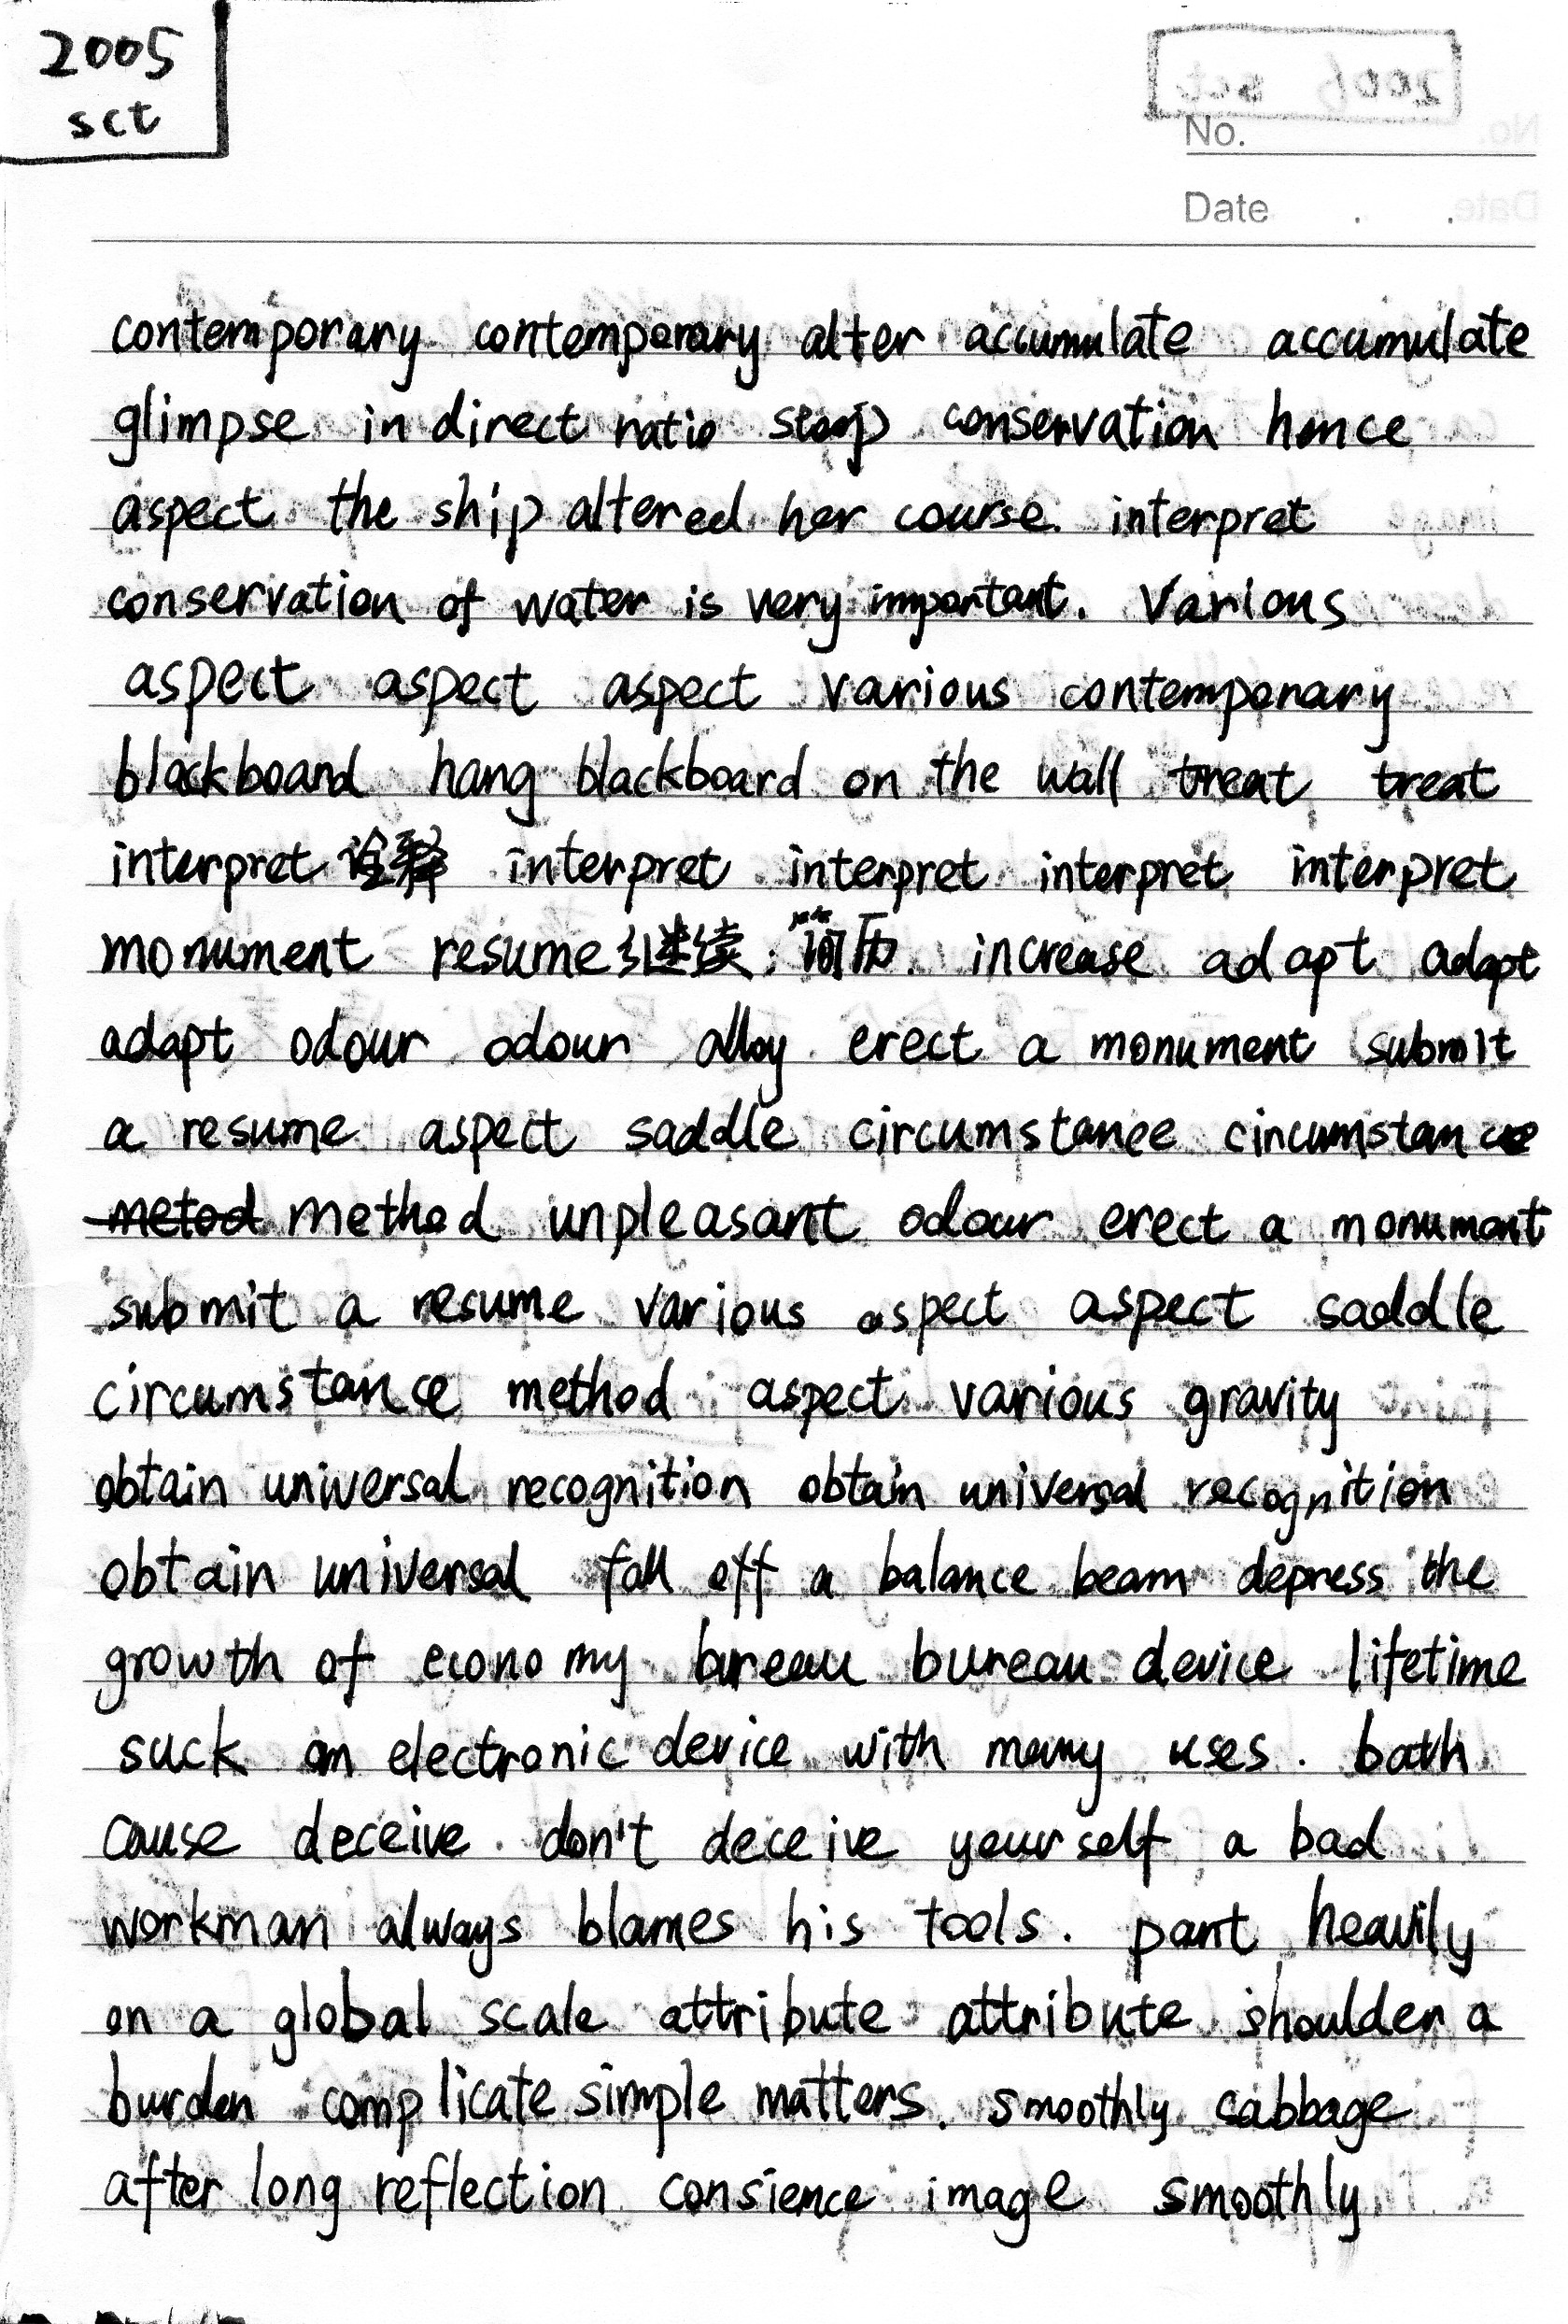 2005
sct
No.
Date . .
contemporary contemporary alter accumulate accumulate
glimpse in direct ratio conservation hence
aspect the ship altered her course. interpret
conservation of water is very important. Various
aspect aspect aspect various contemporary
blackboard hang blackboard on the wall treat treat
interpret 诠释 interpret interpret interpret interpret
monument resume 继续 简历. increase adapt adapt
adapt odour odour alloy erect a monument submit
a resume aspect saddle circumstance circumstance
metod method unpleasant odour erect a monument
submit a resume various aspect aspect saddle
circumstance method aspect various gravity
obtain universal recognition obtain universal recognition
obtain universal fall off a balance beam depress the
growth of economy bureau bureau device lifetime
suck an electronic device with many uses. bath
cause deceive. don't deceive yourself a bad
workman always blames his tools. pant heavily
on a global scale attribute attribute shoulder a
burden complicate simple matters. smoothly cabbage
after long reflection consience image smoothly